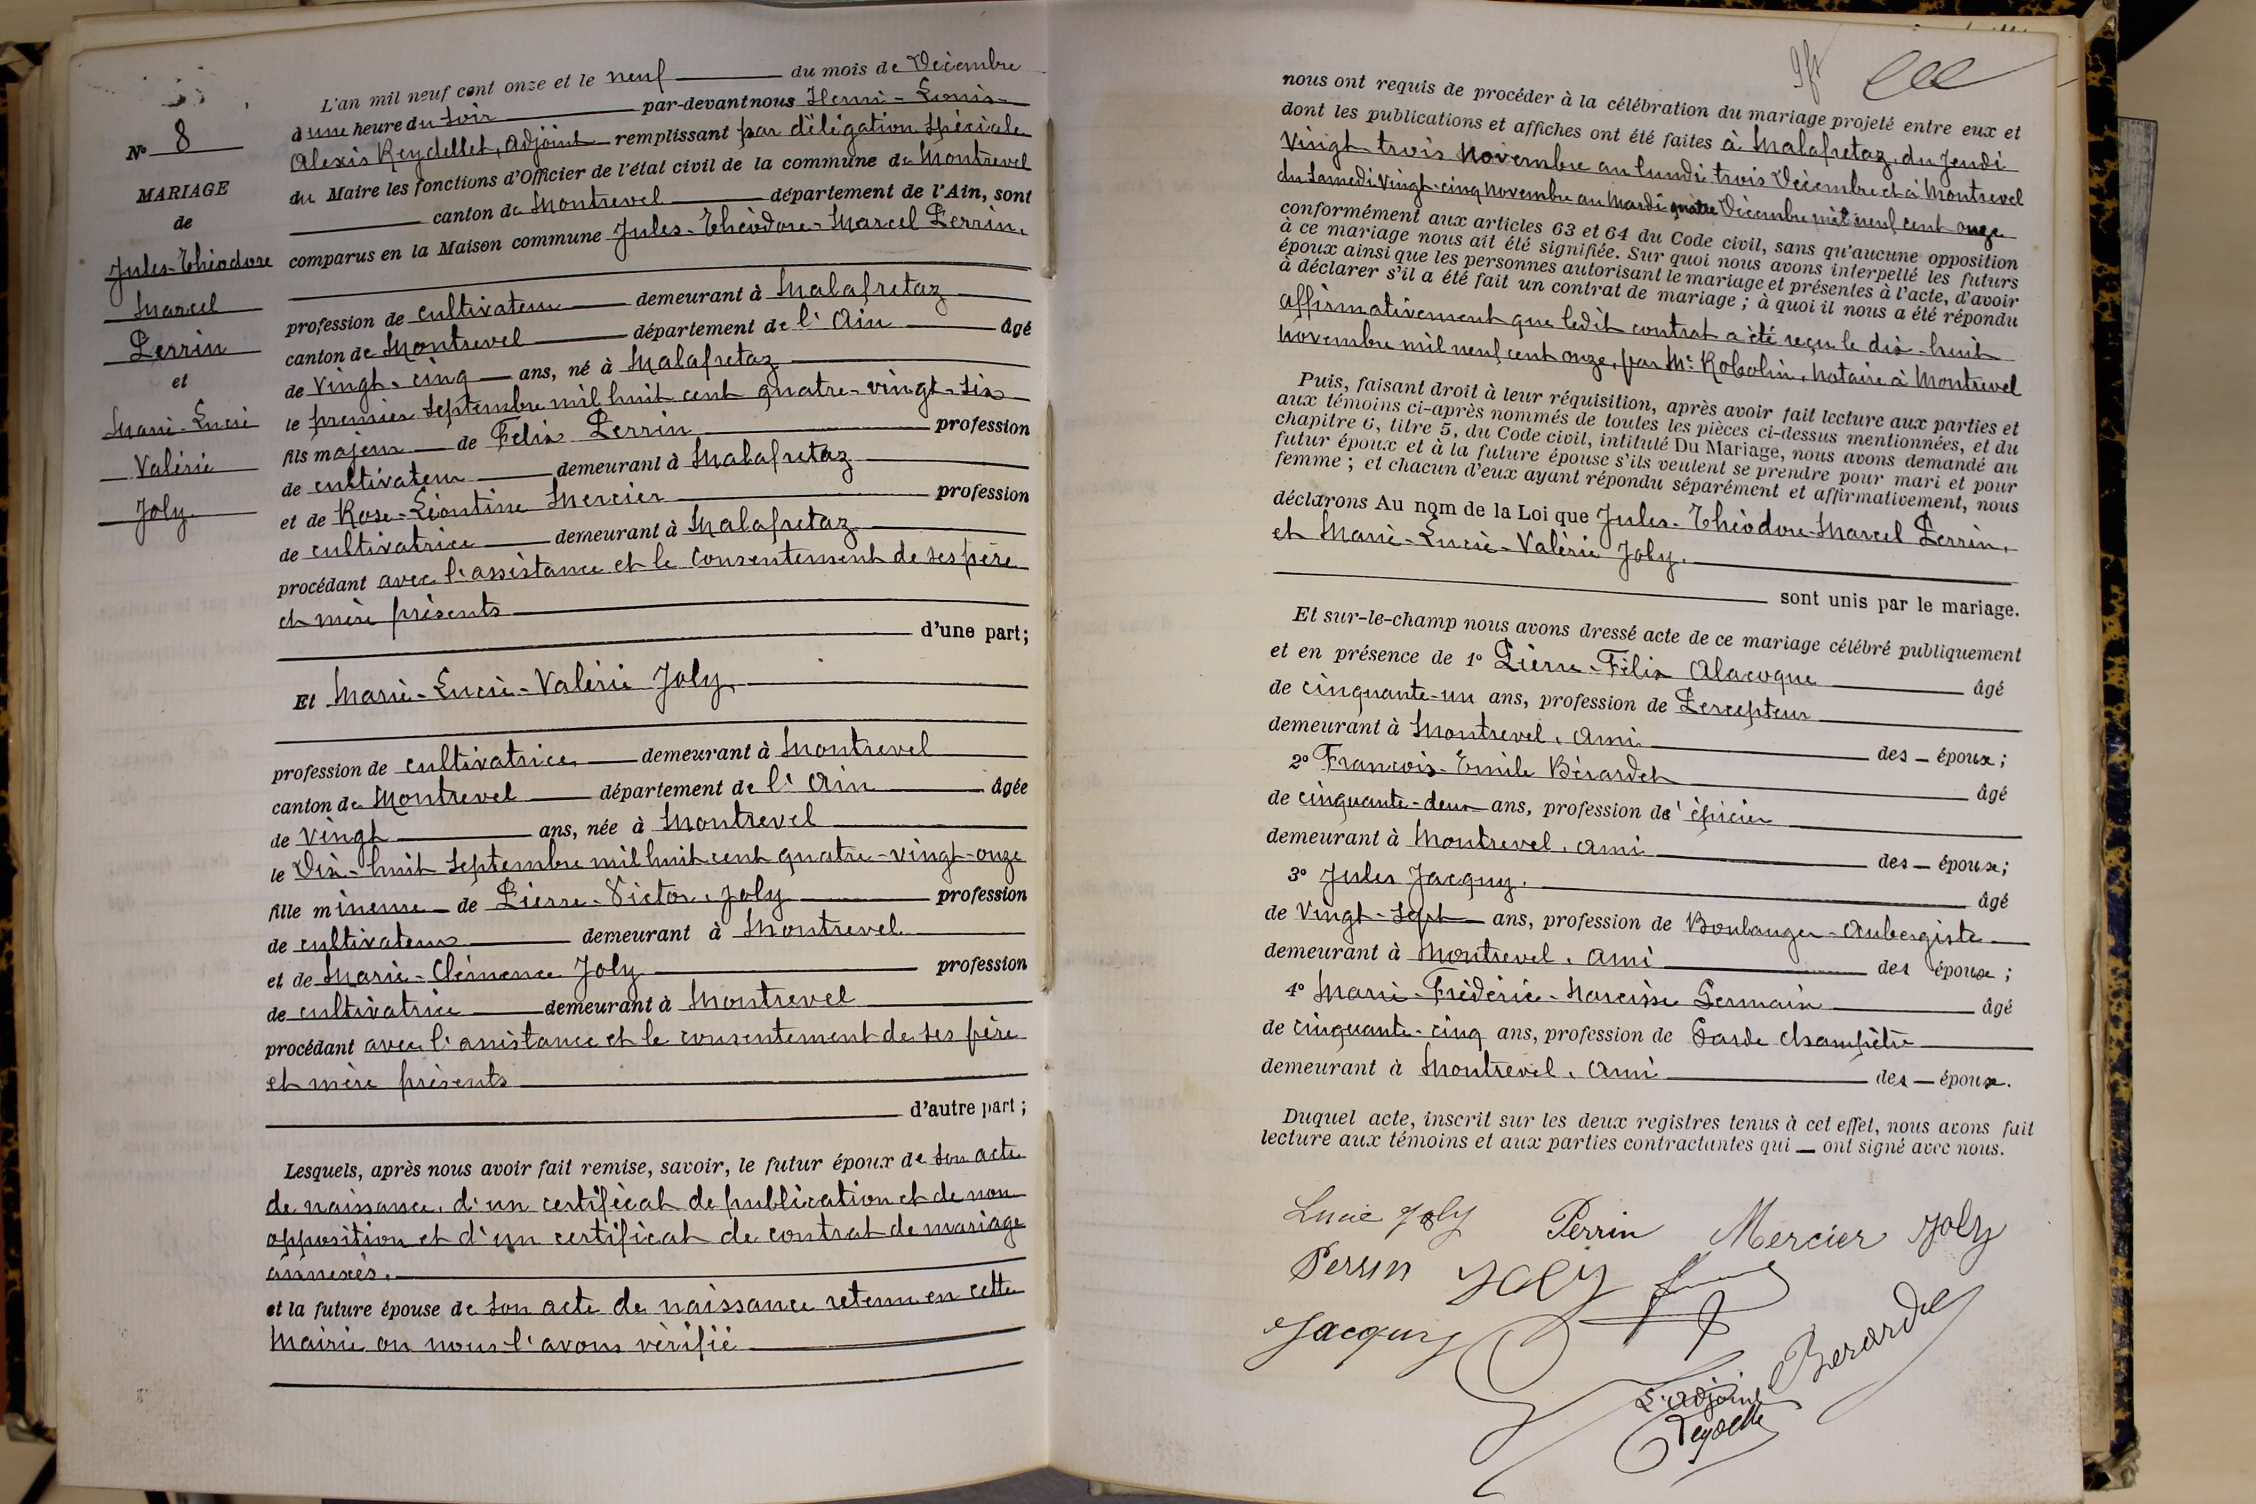 N° 8
MARIAGE
de
Jules-Théodore
Marcel
Perrin
et
Marie-Lucie
Valérie
Joly.
L'an mil neuf cent onze et le neuf du mois de Décembre
à une heure du soir par-devant nous Henri-Louis-
Alexis Reydellet, Adjoint remplissant par délégation spéciale
du Maire les fonctions d'Officier de l'état civil de la commune de Montrevel
canton de Montrevel département de l'Ain, sont
comparus en la Maison commune Jules-Théodore-Marcel Perrin,
profession de cultivateur demeurant à Malafretaz
canton de Montrevel département de l'Ain âgé
de vingt-cinq ans, né à Malafretaz
le premier septembre mil huit cent quatre-vingt-six
fils majeur de Félix Perrin profession
de cultivateur demeurant à Malafretaz
et de Rose-Léontine Mercier profession
de cultivatrice demeurant à Malafretaz
procédant avec l'assistance et le consentement de ses père
et mère présents
d'une part;
Et Marie-Lucie-Valérie Joly,
profession de cultivatrice, demeurant à Montrevel
canton de Montrevel département de l'Ain âgée
de vingt ans, née à Montrevel
le Dix-huit septembre mil huit cent quatre-vingt-onze
fille mineure de Pierre-Victor Joly profession
de cultivateur demeurant à Montrevel
et de Marie-Clémence Joly profession
de cultivatrice demeurant à Montrevel
procédant avec l'assistance et le consentement de ses père
et mère présents
d'autre part;
Lesquels, après nous avoir fait remise, savoir, le futur époux de son acte
de naissance, d'un certificat de publication et de non
opposition et d'un certificat de contrat de mariage
annexés.
et la future épouse de son acte de naissance retenu en cette
Mairie ou nous l'avons vérifié
nous ont requis de procéder à la célébration du mariage projeté entre eux et
dont les publications et affiches ont été faites à Malafretaz, du Jeudi
Vingt trois Novembre au lundi trois Décembre et à Montrevel
du Samedi vingt-cinq novembre au Mardi quatre Décembre mil neuf cent onze
conformément aux articles 63 et 64 du Code civil, sans qu'aucune opposition
à ce mariage nous ait été signifiée. Sur quoi nous avons interpellé les futurs
époux ainsi que les personnes autorisant le mariage et présentes à l'acte, d'avoir
à déclarer s'il a été fait un contrat de mariage; à quoi il nous a été répondu
affirmativement que ledit contrat a été reçu le dix-huit
novembre mil neuf cent onze, par Me Robolin, notaire à Montrevel
Puis, faisant droit à leur réquisition, après avoir fait lecture aux parties et
aux témoins ci-après nommés de toutes les pièces ci-dessus mentionnées, et du
chapitre 6, titre 5, du Code civil, intitulé Du Mariage, nous avons demandé au
futur époux et à la future épouse s'ils veulent se prendre pour mari et pour
femme; et chacun d'eux ayant répondu séparément et affirmativement, nous
déclarons Au nom de la Loi que Jules-Théodore-Marcel Perrin,
et Marie-Lucie-Valérie Joly.
sont unis par le mariage.
Et sur-le-champ nous avons dressé acte de ce mariage célébré publiquement
et en présence de 1° Pierre-Félix Alacoque âgé
de cinquante-un ans, profession de Percepteur
demeurant à Montrevel, ami des époux;
2° François-Emile Bérardet âgé
de cinquante-deux ans, profession de épicier
demeurant à Montrevel, ami des époux;
3° Jules Jacquy. âgé
de vingt-sept ans, profession de Boulanger-Aubergiste
demeurant à Montrevel, ami des époux;
4° Marie-Frédéric-Narcisse Germain âgé
de cinquante-cinq ans, profession de Garde champêtre
demeurant à Montrevel, ami des époux.
Duquel acte, inscrit sur les deux registres tenus à cet effet, nous avons fait
lecture aux témoins et aux parties contractantes qui ont signé avec nous.
Lucie Joly Perrin Mercier Joly
Perrin Joly
Jacquy Berardet
L'adjoint